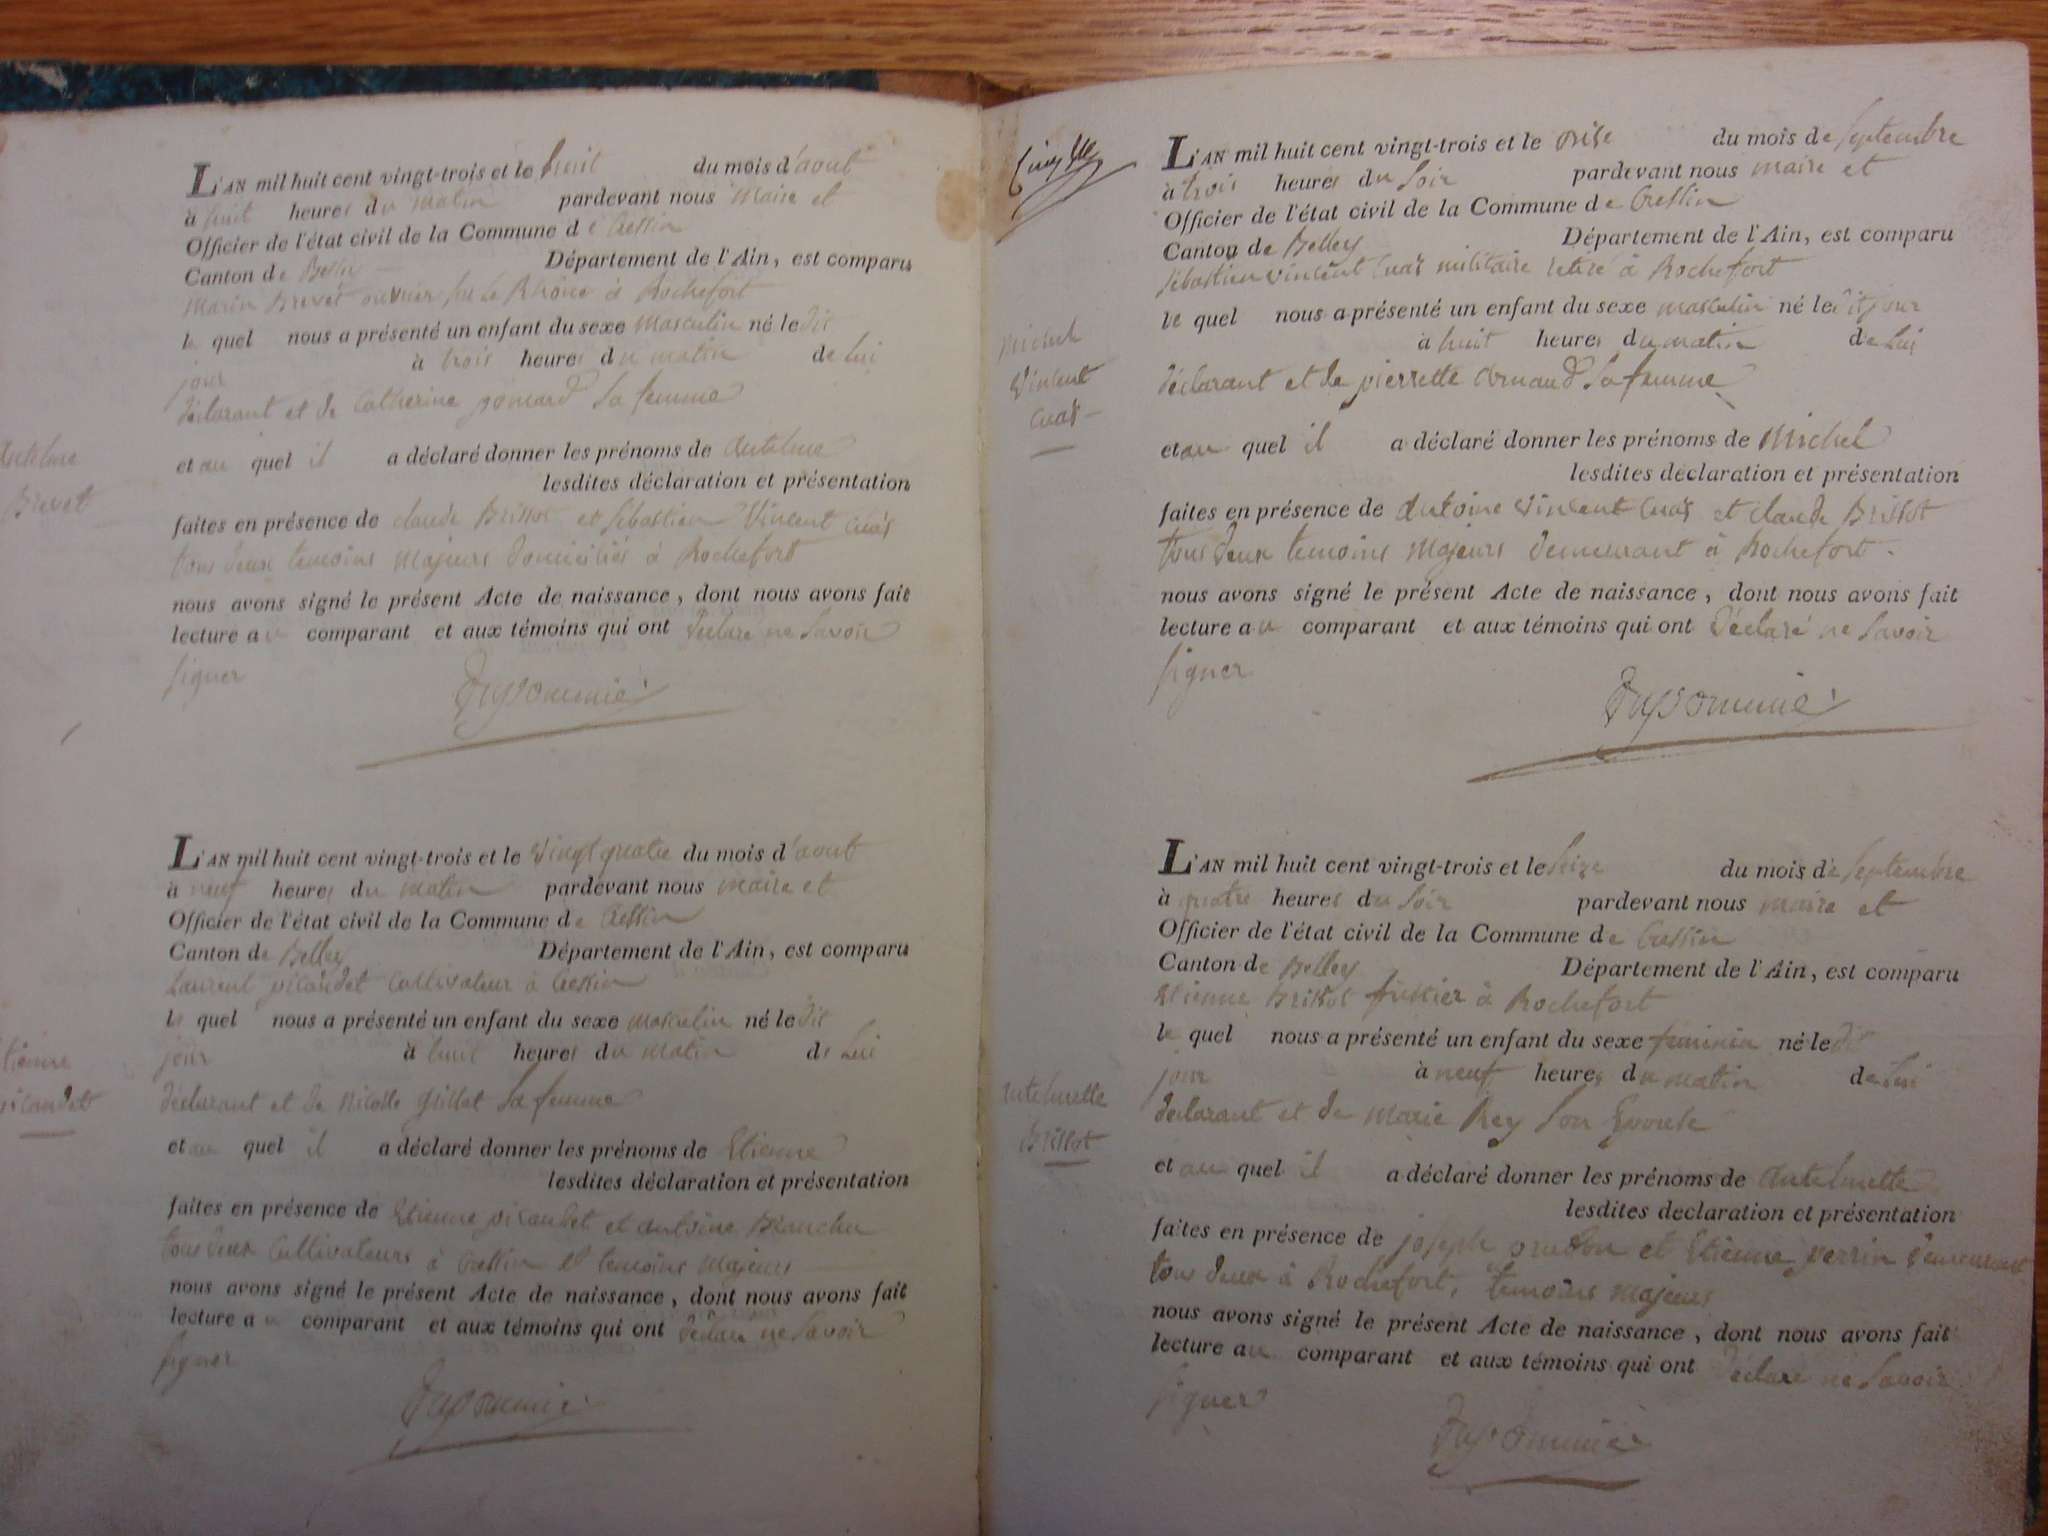 L'AN mil huit cent vingt-trois et le huit du mois d'aout
à huit heures du matin pardevant nous maire et
Officier de l'état civil de la Commune de Cressin
Canton de Belley Département de l'Ain, est comparu
Marin Brevet ouvrier sur le Rhône à Rochefort
le quel nous a présenté un enfant du sexe masculin né le dit
jour à trois heures du matin de lui
déclarant et de Catherine gomard sa femme
et au quel il a déclaré donner les prénoms de antelme
lesdites déclaration et présentation
faites en présence de claude Brissot et Sébastien Vincent cuaz
tous deux temoins majeurs domiciliés à Rochefort
nous avons signé le présent Acte de naissance, dont nous avons fait
lecture au comparant et aux témoins qui ont déclaré ne savoir
signer
antelme
Brevet
L'AN mil huit cent vingt-trois et le vingt quatre du mois d'aout
à neuf heures du matin pardevant nous maire et
Officier de l'état civil de la Commune de Cressin
Canton de Belley Département de l'Ain, est comparu
Laurent picaudet cultivateur à Cressin
le quel nous a présenté un enfant du sexe masculin né le dit
jour à huit heures du matin de lui
déclarant et de nicolle guillet sa femme
et au quel il a déclaré donner les prénoms de Etienne
lesdites déclaration et présentation
faites en présence de Etienne picaudet et antoine Blanchin
tous deux cultivateurs à Cressin et temoins majeurs
nous avons signé le présent Acte de naissance, dont nous avons fait
lecture au comparant et aux témoins qui ont déclaré ne savoir
signer
tienne
icaudet
L'AN mil huit cent vingt-trois et le du mois de septembre
à trois heures du soir pardevant nous maire et
Officier de l'état civil de la Commune de Cressin
Canton de Belley Département de l'Ain, est comparu
Sébastien vincent cuaz militaire retiré à Rochefort
le quel nous a présenté un enfant du sexe masculin né le dit jour
à huit heures du matin de lui
déclarant et de pierrette arnaud sa femme
et au quel il a déclaré donner les prénoms de Michel
lesdites déclaration et présentation
faites en présence de antoine vincent cuaz et claude Brissot
tous deux temoins majeurs demeurant à Rochefort.
nous avons signé le présent Acte de naissance, dont nous avons fait
lecture au comparant et aux témoins qui ont déclaré ne savoir
signer
Michel
Vincent
cuaz
L'AN mil huit cent vingt-trois et le seize du mois de septembre
à quatre heures du soir pardevant nous maire et
Officier de l'état civil de la Commune de Cressin
Canton de Belley Département de l'Ain, est comparu
Etienne Brissot à Rochefort
le quel nous a présenté un enfant du sexe feminin né le dit
jour à neuf heures du matin de lui
déclarant et de marie Rey son Epouse
et au quel il a déclaré donner les prénoms de antelmette
lesdites declaration et présentation
faites en présence de joseph et Etienne perrin demeurant
tous deux à Rochefort, temoins majeurs
nous avons signé le présent Acte de naissance, dont nous avons fait
lecture au comparant et aux témoins qui ont déclaré ne savoir
signer
antelmette
Brissot